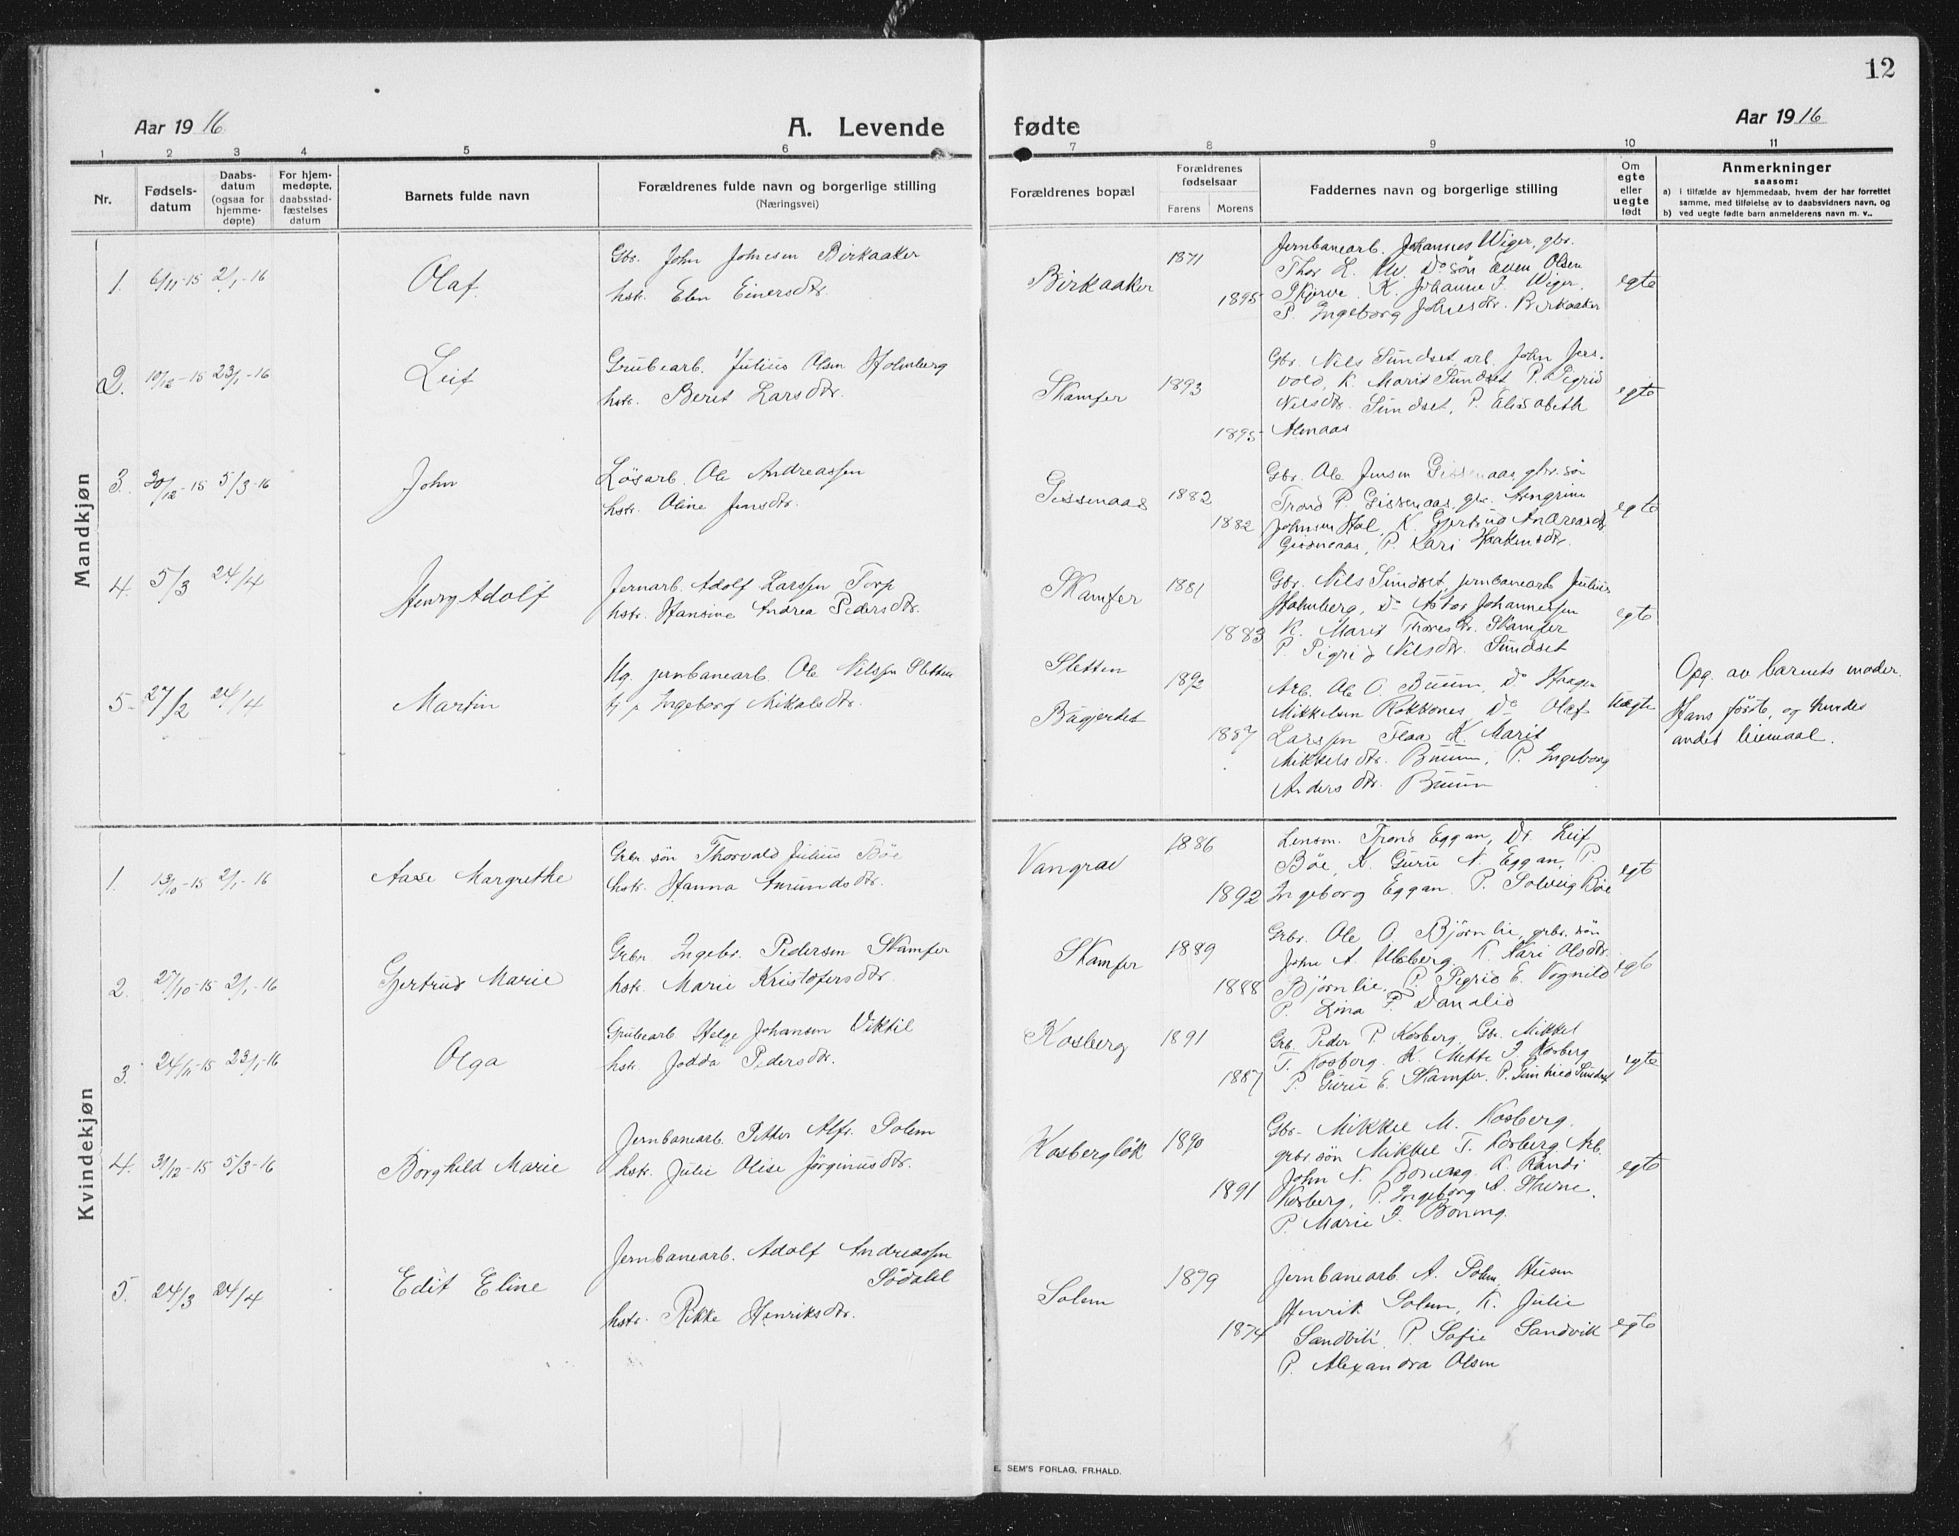 12
Aar 1916
A. Levende fødte
Aar 1916
1 2 3 4 5 6 7 8 9 10 11
Nr.
Fødsels-
datum
Daabs-
datum
(ogsaa for
hjemme-
døpte)
For hjem-
medøpte,
daabsstad-
fæstelses
datum
Barnets fulde navn
Forældrenes fulde navn og borgerlige stilling
(Næringsvei)
Forældrenes bopæl
Forældrenes
fødselsaar
Farens Morens
Faddernes navn og borgerlige stilling
Om
egte
eller
uegte
født
Anmerkninger
saasom:
a) i tilfælde av hjemmedaab, hvem der har forrettet
samme, med tilføielse av to daabsvidners navn, og
b) ved uegte fødte barn anmelderens navn m. v..
Mandkjøn
1. 6/11-15 2/1-16 Olaf
Gbr. John Johnsen Birkaaker
hstr. Elen Einersdtr.
Birkaaker 1871 1895
Jernbanearb. Johannes Wiger, gbr.
Thor L. Do søn Even Olsen
Skjerve. K. Johanne J. Wiger.
P. Ingeborg Johnsdtr. Birkaaker
egte
2. 10/12-15 23/1-16 Leif
Grubearb. Julius Olsen Holmberg
hstr. Beret Larsdtr.
Skamfer 1893 1895
Gbr. Nils Sundset, arb. John Jers-
vold, K. Marit Sundset P. Sigrid
Nilsdtr. Sundset, P. Elisabeth
Almaas
egte
3. 30/12-15 5/3-16 John
Løsarb. Ole Andreassen
hstr. Oline Jensdtr.
Gissenaas 1882 1882
Gbr. Ole Jensen Gissenaas, gbr. søn
Trond P. Gissenaas, gbr. Arngrim
Johnsen Hol, K. Gjertrud Andreasdtr.
Gissenaas, P. Kari Haakensdtr.
egte
4. 5/3 24/4 Henry Adolf
Jernarb. Adolf Larssen Torp
hstr. Hansine Andrea Pedersdtr.
Skamfer 1881 1883
Gbr. Nils Sundset, jernbanearb Julius
Holmberg, Do Astor Johannessen
K. Marit Thoresdtr. Skamfer
P. Sigrid Nilsdtr. Sundset
egte
5 27/2 24/4 Martin
Ug. jernbanearb. Ole Nilssen Sletten
Ingeborg Mikalsdtr.
Sletten
Bugjerdet
1892 1887
Arb. Ole O. Buum, Do Haagen
Mikkelsen Rokkones Do Olaf
Larssen Flaa K. Marit
Mikkelsdtr. Buum, P. Ingeborg
Andersdtr. Buum
Uegte
Opg. av barnets moder.
Hans første, og hendes
andet leiemaal.
Kvindekjøn
1. 13/10-15 2/1-16 Aase Margrethe
Gbr. søn Thorvald Julius Bøe
hstr. Hanna Amundsdtr.
Vangrav 1886 1892
Lensm. Trond Eggan, Dr. Leif
Bøe, K. Guru N. Eggan, P.
Ingeborg Eggan. P. Solveig Bøe
egte
2. 27/10-15 2/1-16 Gjertrud Marie
Gbr. Ingebr. Pedersen Skamfer
hstr. Marie Kristofersdtr.
Skamfer 1889 1888
Grbr. Ole O. Bjørnlie, grbr. søn
John A. Ulsberg. K. Kari Olsdtr.
Bjørnlie, P. Sigrid E. Vognild
P. Lina P. Danalid
egte
3. 24/11-15 23/1-16 Olga
Grubearb Helge Johansen Viktil
hstr. Jodda Pedersdtr.
Kosberg 1891 1887
Grb. Peder P. Kosberg. Gbr. Mikkel
T. Kosberg K. Mette J. Kosberg
P. Guru E. Skamfer. P. Gunhild Sundset
egte
4. 31/12-15 5/3-16 Borghild Marie
Jernbanearb. Petter Alfr. Solem
hstr. Julie Olise Jørginusdtr.
Kosbergløk 1890 1891
Gbr. Mikkel M. Kosberg.
grbr. søn Mikkel T. Kosberg Arb.
John N. Bonesg K. Randi
Kosberg, P. Ingeborg A.
P. Marie J.
egte
5. 24/3 24/4 Edit Eline
Jernbanearb. Adolf Andreassen
Sødahl
hstr. Rikke Henriksdtr.
Solem 1879 1874
Jernbanearb A. Solem,
Henrik Solem, K. Julie
Sandvik P. Sofie Sandvik
P. Alexandra Olsen
egte
E. SEM'S FORLAG, FR.HALD.